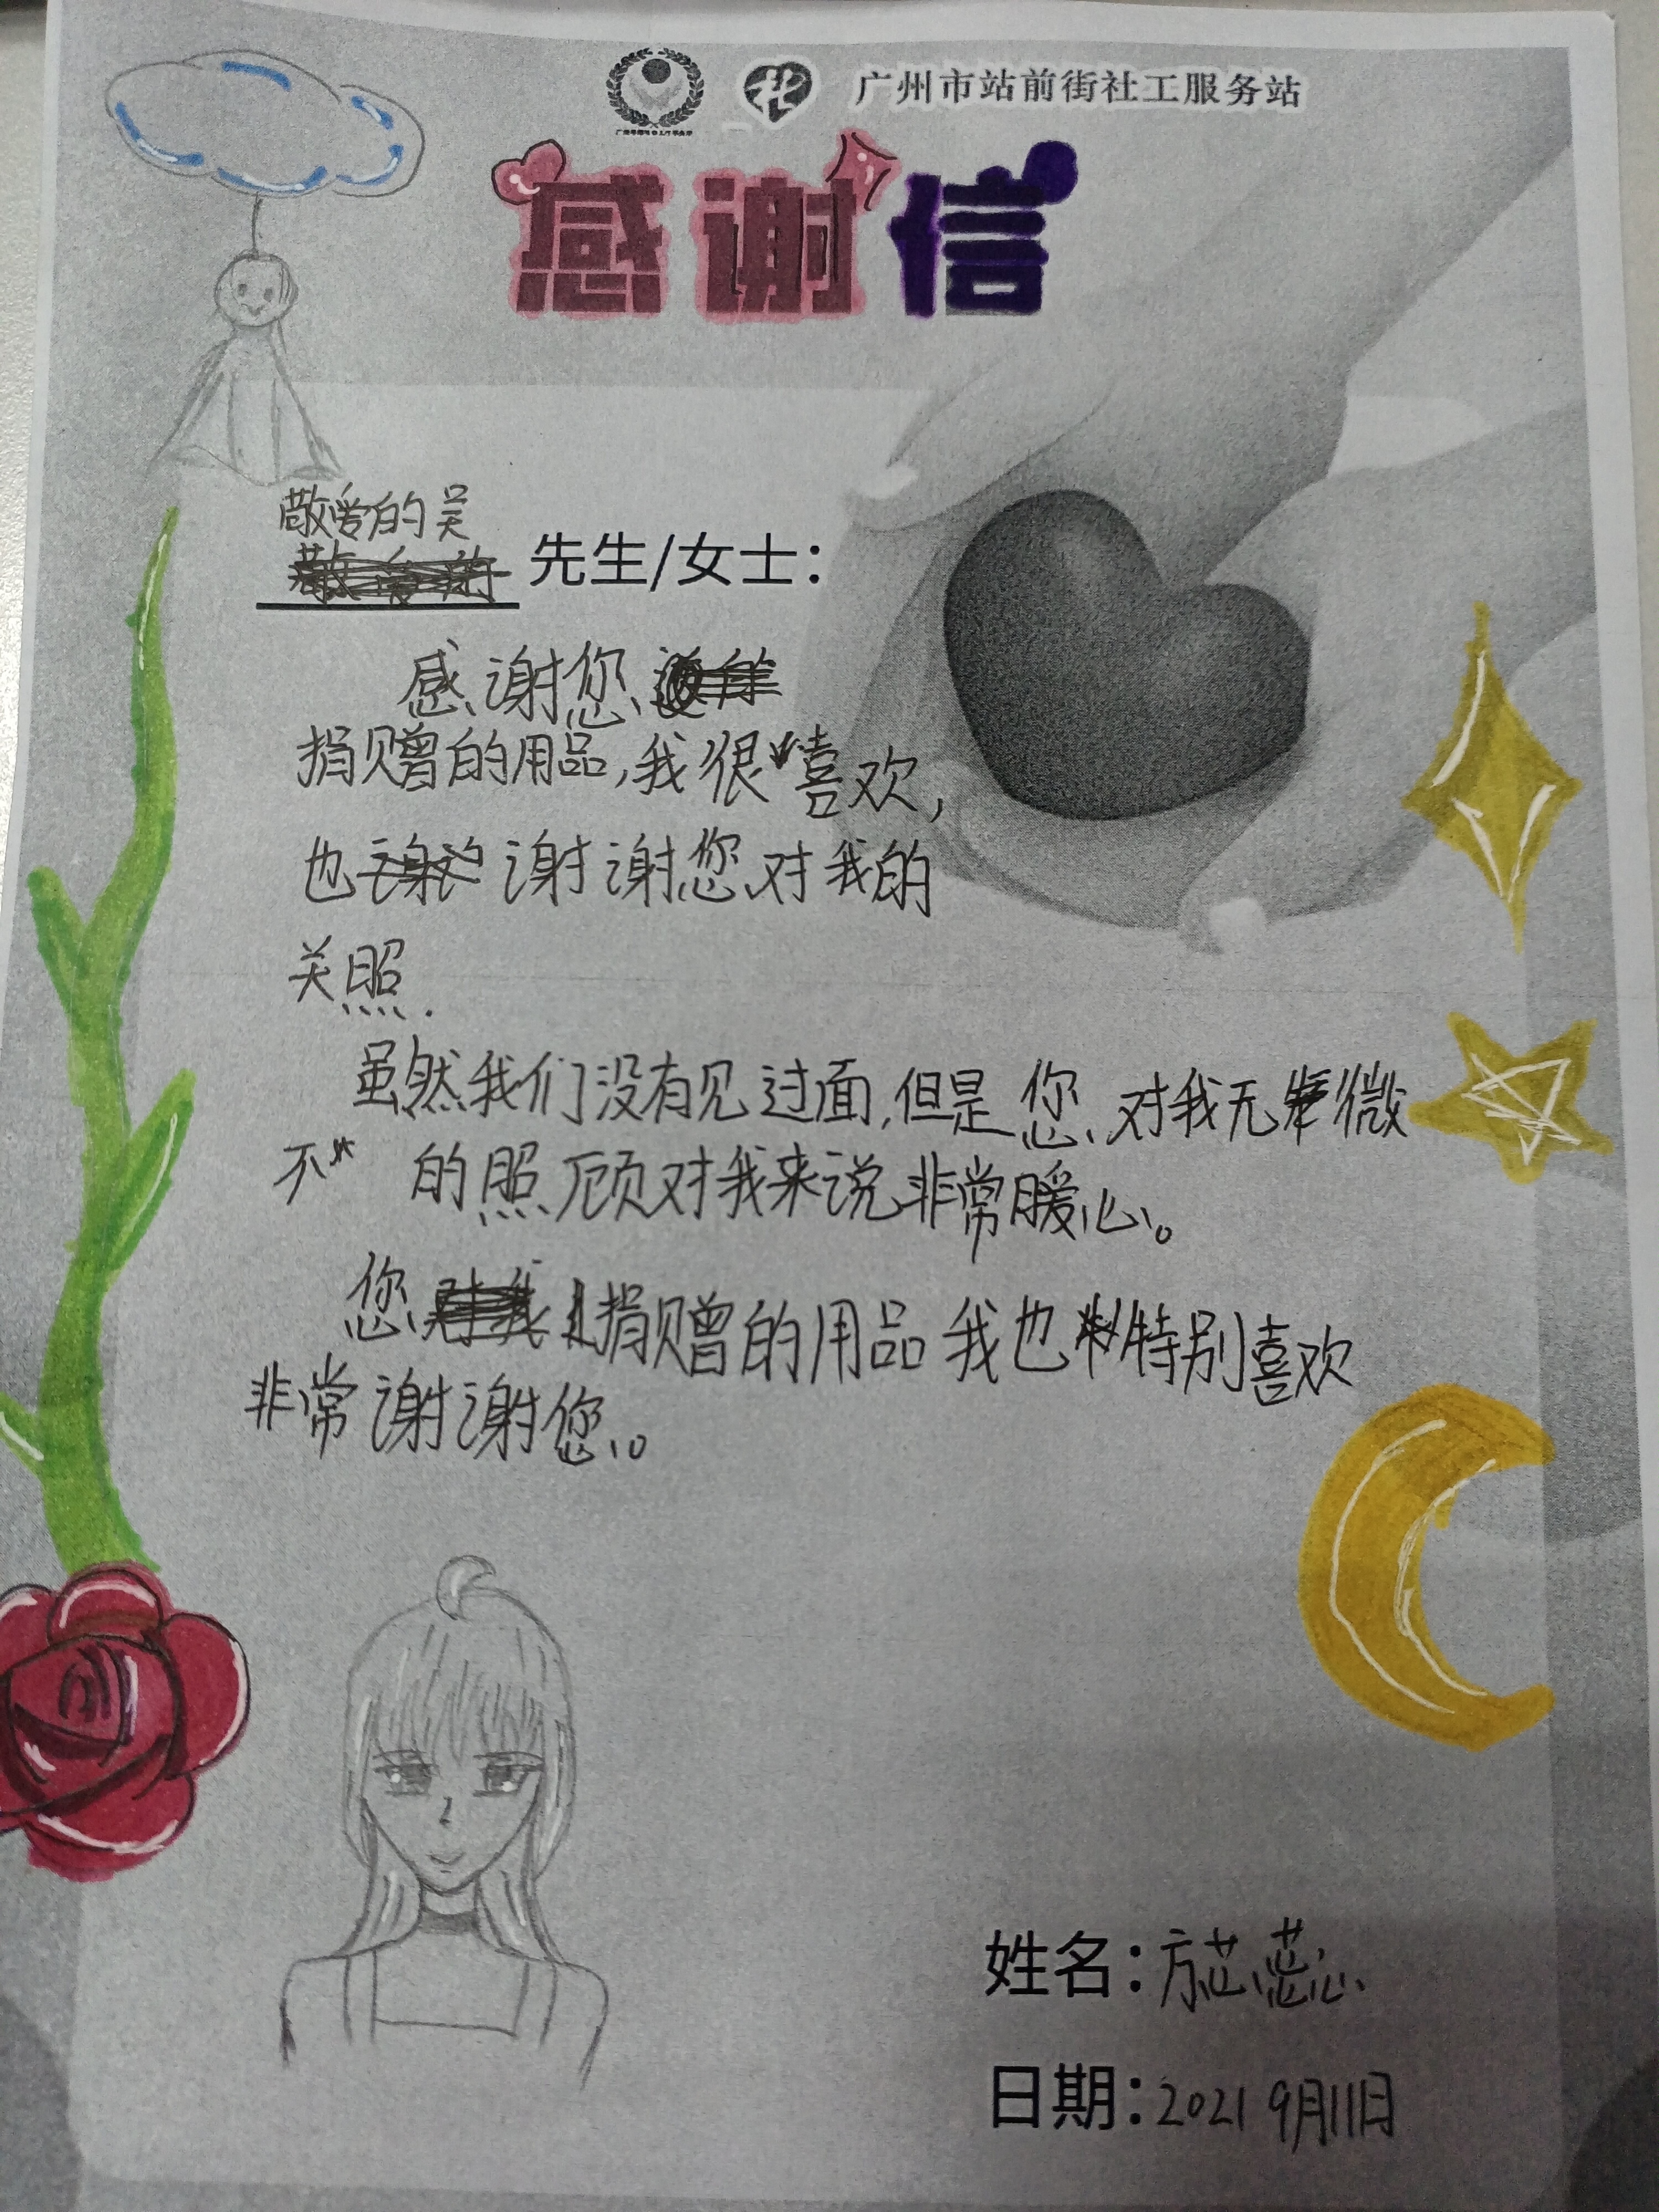 广州市站前街社工服务站
感谢信
敬爱的吴
先生/女士：
感谢您
捐赠的用品，我很喜欢，
也谢谢您对我的
关照.
虽然我们没有见过面，但是您对我无微
不 的照顾对我来说非常暖心。
您捐赠的用品我也特别喜欢
非常谢谢您。
姓名：方芯蕊
日期：2021 9月11日